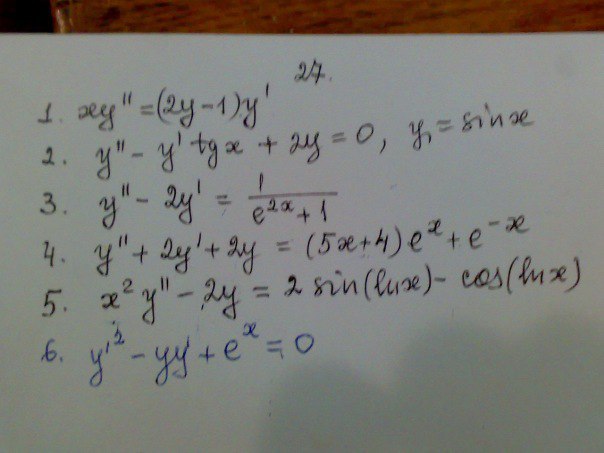 27.
1. xy" = (2y-1)y'
2. y" - y' tgx + 2y = 0, y₁ = sinx
3. y" - 2y' = 1/(e^{2x}+1)
4. y" + 2y' + 2y = (5x+4)e^x + e^{-x}
5. x² y" - 2y = 2 sin(lnx) - cos(lnx)
6. y'² - yy' + e^x = 0